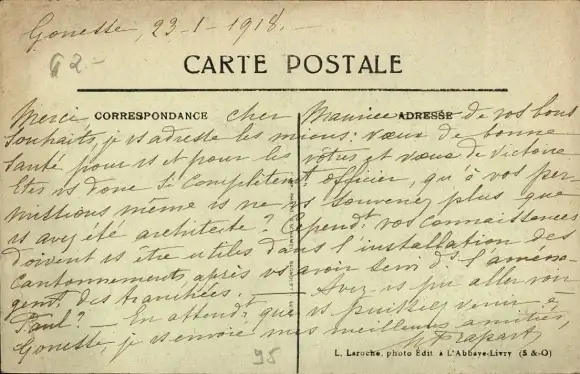 Gonesse, 23-1-1918.-
92.-
CARTE POSTALE
CORRESPONDANCE ADRESSE
Merci cher Maurice de vos bons
souhaits, je vs adresse les miens: vœux de bonne
santé pour vs et pour les vôtres et vœux de victoire
Etes vs donc si complètemt officier, qu'à vos per-
missions même vs ne vs souvenez plus que
vs avez été architecte? Cependt vos connaissances
doivent vs être utiles dans l'installation des
cantonnements après vs avoir servi ds l'aména-
gemt des tranchées. — Avez vs pu aller voir
Paul? — En attendt que vs puissiez venir à
Gonesse, je vs envoie mes meilleures amitiés,
Frapart
95
L. Laroche, photo Edit. à L'Abbaye-Livry (S & O)